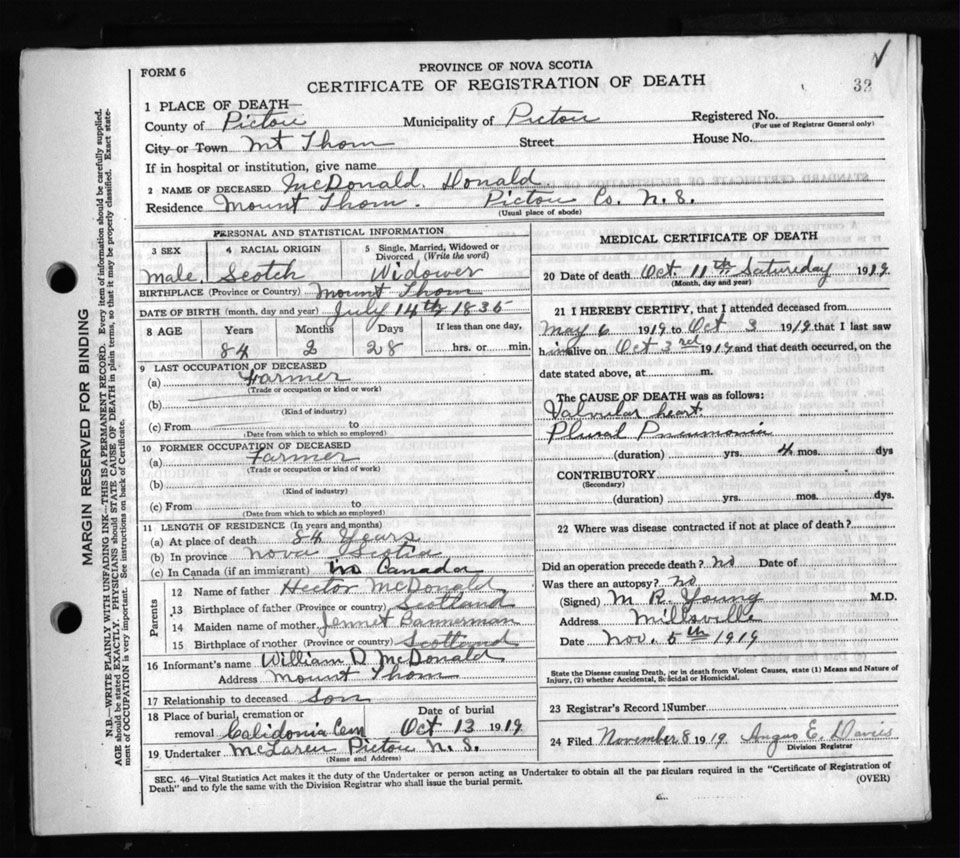 32
PROVINCE OF NOVA SCOTIA
FORM 6
CERTIFICATE OF REGISTRATION OF DEATH
1 PLACE OF DEATH—
County of Pictou Municipality of Pictou Registered No.
(For use of Registrar General only)
City or Town Mt Thom Street House No.
If in hospital or institution, give name
2 NAME OF DECEASED McDonald. Donald
Residence Mount Thom. Pictou Co. N. S.
(Usual place of abode)
PERSONAL AND STATISTICAL INFORMATION
3 SEX 4 RACIAL ORIGIN 5 Single, Married, Widowed or
Divorced (Write the word)
Male. Scotch Widower
BIRTHPLACE (Province or Country) Mount Thom
DATE OF BIRTH (month, day and year) July 14th 1835
8 AGE Years Months Days If less than one day,
84 2 28 hrs. or min.
9 LAST OCCUPATION OF DECEASED
(a) Farmer
(Trade or occupation or kind or work)
(b)
(Kind of industry)
(c) From to
(Date from which to which so employed)
10 FORMER OCCUPATION OF DECEASED
(a) Farmer
(Trade or occupation or kind of work)
(b)
(Kind of industry)
(c) From to
(Date from which to which so employed)
11 LENGTH OF RESIDENCE (In years and months)
(a) At place of death 84 Years
(b) In province Nova Scotia
(c) In Canada (if an immigrant) in Canada
Parents
12 Name of father Hector McDonald
13 Birthplace of father (Province or country) Scotland
14 Maiden name of mother Jennet Bannerman
15 Birthplace of mother (Province or country) Scotland
16 Informant's name William D. McDonald
Address Mount Thom
17 Relationship to deceased Son
18 Place of burial, cremation or Date of burial
removal Calidonia Cem Oct 13 1919
19 Undertaker McLaren Pictou N. S.
(Name and Address)
MEDICAL CERTIFICATE OF DEATH
20 Date of death Oct. 11th Satureday 1919
(Month, day and year)
21 I HEREBY CERTIFY, that I attended deceased from
May 6 1919 to Oct 3 1919 that I last saw
him alive on Oct 3rd 1919 and that death occurred, on the
date stated above, at m.
The CAUSE OF DEATH was as follows:
Valvular heart
Plural Pneumonia
(duration) yrs. 4 mos. dys
CONTRIBUTORY
(Secondary)
(duration) yrs. mos. dys.
22 Where was disease contracted if not at place of death?
Did an operation precede death? no Date of
Was there an autopsy? no
(Signed) M. R. Young M.D.
Address Millsville
Date Nov. 5th 1919
State the Disease causing Death, or in death from Violent Causes, state (1) Means and Nature of
Injury, (2) whether Accidental, Suicidal or Homicidal.
23 Registrar's Record Number
24 Filed November 8 1919 Angus E. Davis
Division Registrar
SEC. 46—Vital Statistics Act makes it the duty of the Undertaker or person acting as Undertaker to obtain all the particulars required in the "Certificate of Registration of
Death" and to fyle the same with the Division Registrar who shall issue the burial permit. (OVER)
MARGIN RESERVED FOR BINDING
N.B.—WRITE PLAINLY WITH UNFADING INK—THIS IS A PERMANENT RECORD. Every item of information should be carefully supplied.
AGE should be stated EXACTLY. PHYSICIANS should STATE CAUSE OF DEATH in plain terms, so that it may be properly classified. Exact state-
ment of OCCUPATION is very important. See instructions on back of Certificate.